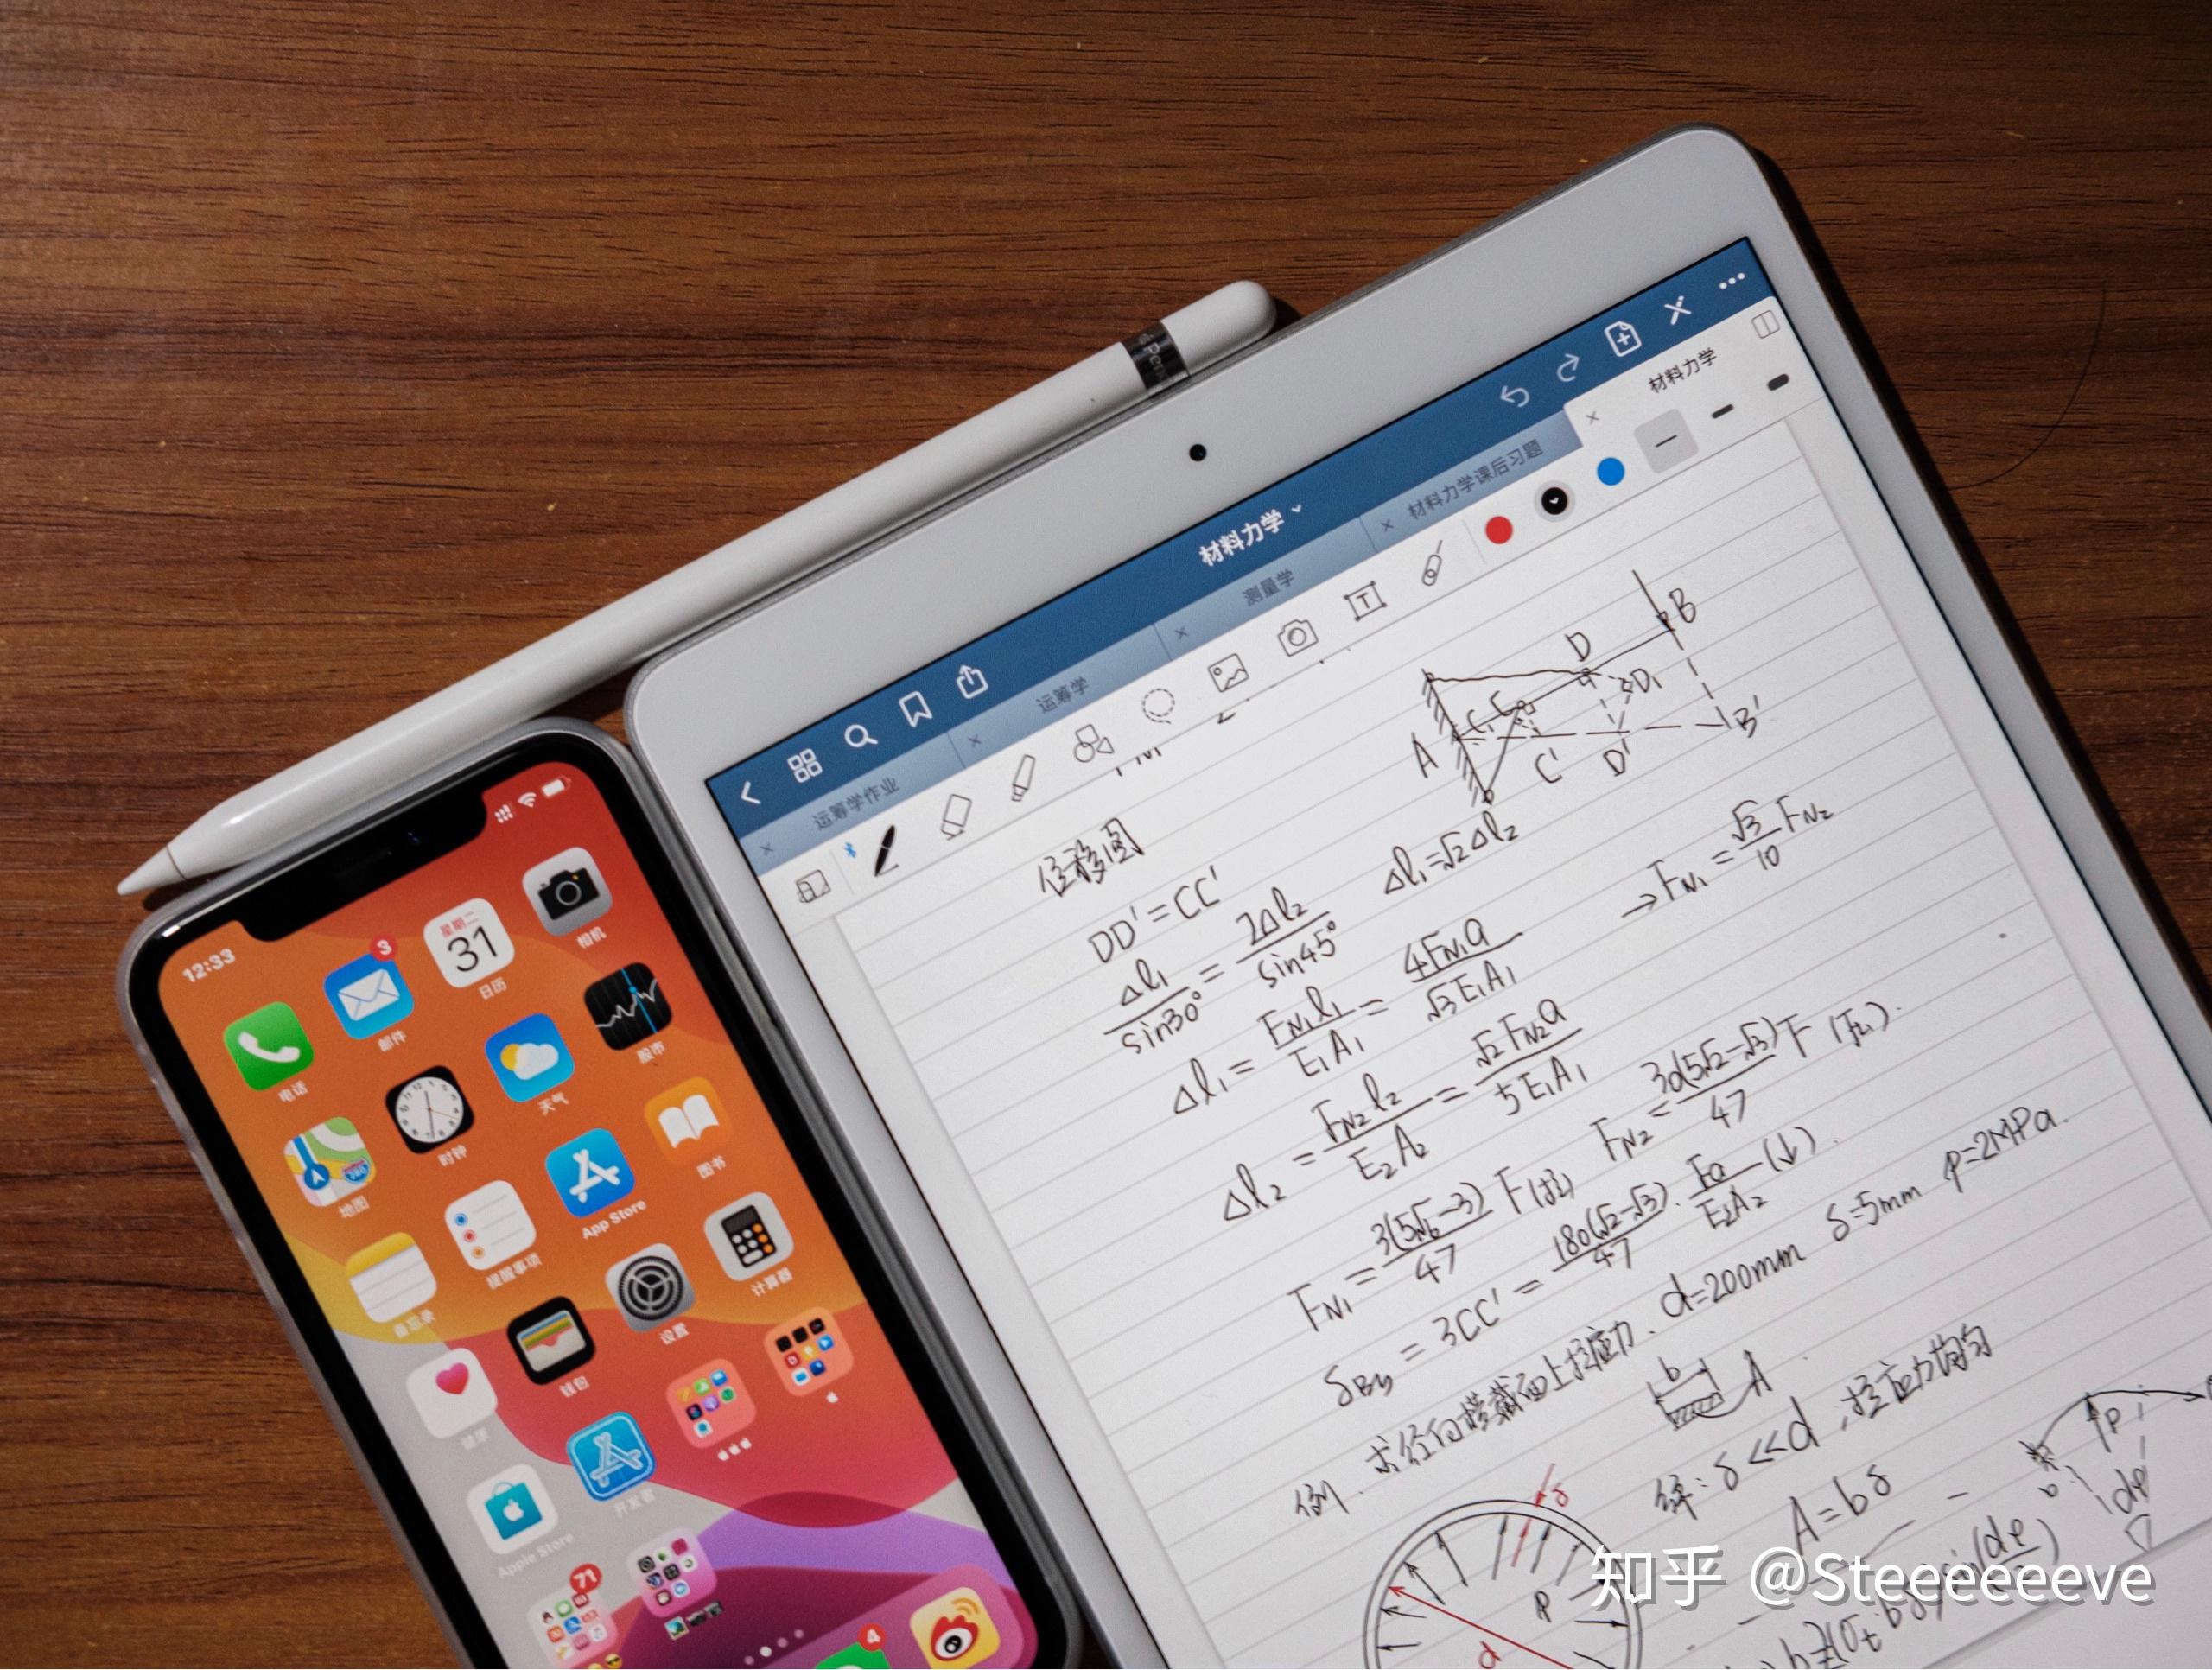 Pencil
12:33
3
星期二
31
相机
日历
邮件
电话
股市
天气
时钟
地图
图书
App Store
提醒事项
备忘录
计算器
设置
钱包
健康
开发者
Apple Store
71
4
材料力学
运筹学作业
运筹学
测量学
材料力学课后习题
材料力学
T
位移图
A
B
D
D₁
C₁ C
C'
D'
B'
DD'=CC'
Δl₁/sin30° = 2Δl₂/sin45°
Δl₁=√2Δl₂
Δl₁ = F_N₁l₁/E₁A₁ = 4F_N₁a/√3E₁A₁
→F_N₁ = √3/10 F_N₂
Δl₂ = F_N₂l₂/E₂A₂ = √2F_N₂a/5E₁A₁
F_N₁ = 3(5√6-3)/47 F(拉)
F_N₂ = 30(5√2-√3)/47 F (拉).
δ_By = 3CC' = 180(√2-√3)/47 · Fa/E₂A₂ (↓).
例. 求径向横截面上拉应力. d=200mm δ=5mm p=2MPa.
b
A
解: δ<<d, 拉应力均匀
A=bδ
δ
P
d
P
dφ
知乎 @Steeeeeeve